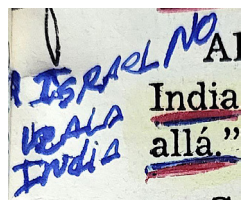 ISRAEL NO
VEALA
INDIA
Al
India
allá.”